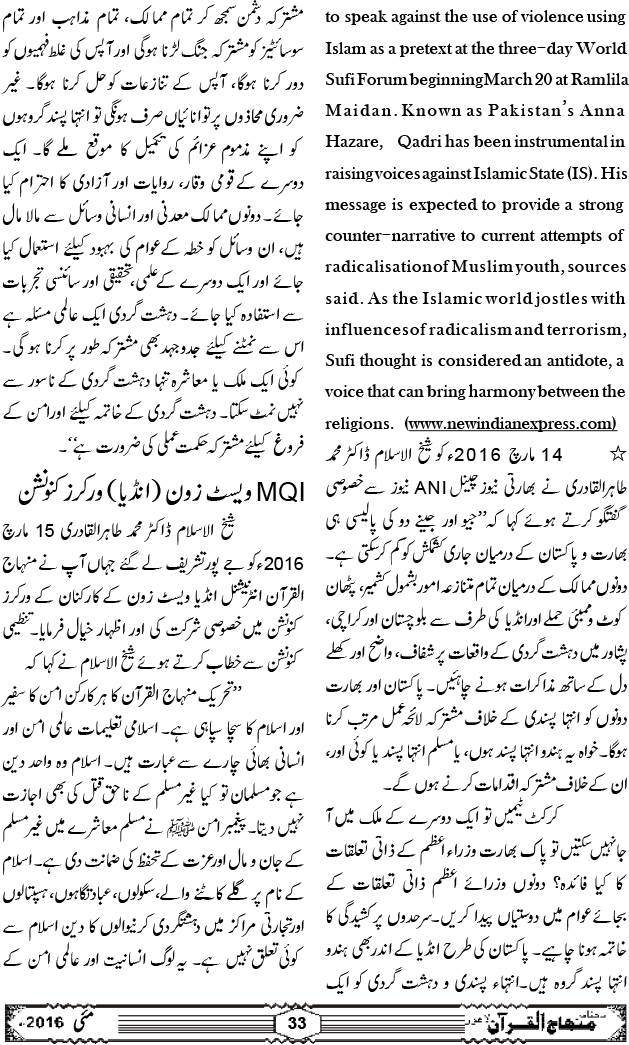 to speak against the use of violence using
Islam as a pretext at the three-day World
Sufi Forum beginning March 20 at Ramlila
Maidan. Known as Pakistan's Anna
Hazare, Qadri has been instrumental in
raising voices against Islamic State (IS). His
message is expected to provide a strong
counter-narrative to current attempts of
radicalisation of Muslim youth, sources
said. As the Islamic world jostles with
influences of radicalism and terrorism,
Sufi thought is considered an antidote, a
voice that can bring harmony between the
religions. (www.newindianexpress.com)
☆ 14 مارچ 2016ء کو شیخ الاسلام ڈاکٹر محمد
طاہرالقادری نے بھارتی نیوز چینل ANI نیوز سے خصوصی
گفتگو کرتے ہوئے کہا کہ ’’جیو اور جینے دو کی پالیسی ہی
بھارت و پاکستان کے درمیان جاری کشمکش کو کم کرسکتی ہے۔
دونوں ممالک کے درمیان تمام متنازعہ امور بشمول کشمیر، پٹھان
کوٹ و ممبئی حملے اور انڈیا کی طرف سے بلوچستان اور کراچی،
پشاور میں دہشت گردی کے واقعات پر شفاف، واضح اور کھلے
دل کے ساتھ مذاکرات ہونے چاہئیں۔ پاکستان اور بھارت
دونوں کو انتہا پسندی کے خلاف مشترکہ لائحہ عمل مرتب کرنا
ہوگا۔ خواہ یہ ہندو انتہا پسند ہوں، یا مسلم انتہا پسند یا کوئی اور،
ان کے خلاف مشترکہ اقدامات کرنے ہوں گے۔
کرکٹ ٹیمیں تو ایک دوسرے کے ملک میں آ
جا نہیں سکتیں تو پاک بھارت وزراء اعظم کے ذاتی تعلقات
کا کیا فائدہ؟ دونوں وزرائے اعظم ذاتی تعلقات کے
بجائے عوام میں دوستیاں پیدا کریں۔ سرحدوں پر کشیدگی کا
خاتمہ ہونا چاہیے۔ پاکستان کی طرح انڈیا کے اندر بھی ہندو
انتہا پسند گروہ ہیں۔ انتہاء پسندی و دہشت گردی کو ایک
مشترکہ دشمن سمجھ کر تمام ممالک، تمام مذاہب اور تمام
سوسائٹیز کو مشترکہ جنگ لڑنا ہوگی اور آپس کی غلط فہمیوں کو
دور کرنا ہوگا، آپس کے تنازعات کو حل کرنا ہوگا۔ غیر
ضروری محاذوں پر توانائیاں صرف ہونگی تو انتہا پسند گروہوں
کو اپنے مذموم عزائم کی تکمیل کا موقع ملے گا۔ ایک
دوسرے کے قومی وقار، روایات اور آزادی کا احترام کیا
جائے۔ دونوں ممالک معدنی اور انسانی وسائل سے مالا مال
ہیں، ان وسائل کو خطہ کے عوام کی بہبود کیلئے استعمال کیا
جائے اور ایک دوسرے کے علمی، تحقیقی اور سائنسی تجربات
سے استفادہ کیا جائے۔ دہشت گردی ایک عالمی مسئلہ ہے
اس سے نمٹنے کیلئے جدوجہد بھی مشترکہ طور پر کرنا ہو گی۔
کوئی ایک ملک یا معاشرہ تنہا دہشت گردی کے ناسور سے
نہیں نمٹ سکتا۔ دہشت گردی کے خاتمہ کیلئے اور امن کے
فروغ کیلئے مشترکہ حکمت عملی کی ضرورت ہے‘‘۔
MQI ویسٹ زون (انڈیا) ورکرز کنونشن
شیخ الاسلام ڈاکٹر محمد طاہرالقادری 15 مارچ
2016ء کو جے پور تشریف لے گئے جہاں آپ نے منہاج
القرآن انٹرنیشنل انڈیا ویسٹ زون کے کارکنان کے ورکرز
کنونشن میں خصوصی شرکت کی اور اظہار خیال فرمایا۔ تنظیمی
کنونشن سے خطاب کرتے ہوئے شیخ الاسلام نے کہا کہ
’’تحریک منہاج القرآن کا ہر کارکن امن کا سفیر
اور اسلام کا سچا سپاہی ہے۔ اسلامی تعلیمات عالمی امن اور
انسانی بھائی چارے سے عبارت ہیں۔ اسلام وہ واحد دین
ہے جو مسلمان تو کیا غیر مسلم کے ناحق قتل کی بھی اجازت
نہیں دیتا۔ پیغمبر امن ﷺ نے مسلم معاشرے میں غیر مسلم
کے جان و مال اور عزت کے تحفظ کی ضمانت دی ہے۔ اسلام
کے نام پر گلے کاٹنے والے، سکولوں، عبادتگاہوں، ہسپتالوں
اور تجارتی مراکز میں دہشتگردی کرنیوالوں کا دین اسلام سے
کوئی تعلق نہیں ہے۔ یہ لوگ انسانیت اور عالمی امن کے
ماہنامہ منہاج القرآن لاہور 33 مئی 2016ء